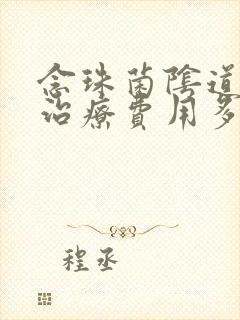 念珠菌陰道
治療費用多
程丞